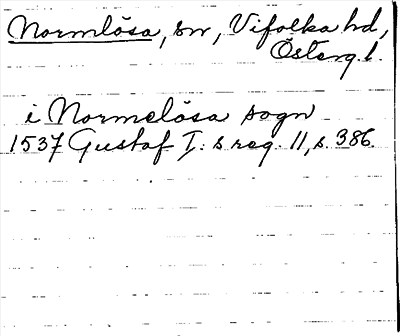 Normlösa, sn, Vifolka hd,
Österg. l.
i Normelösa sogn
1537 Gustaf I:s reg. 11, s. 386.